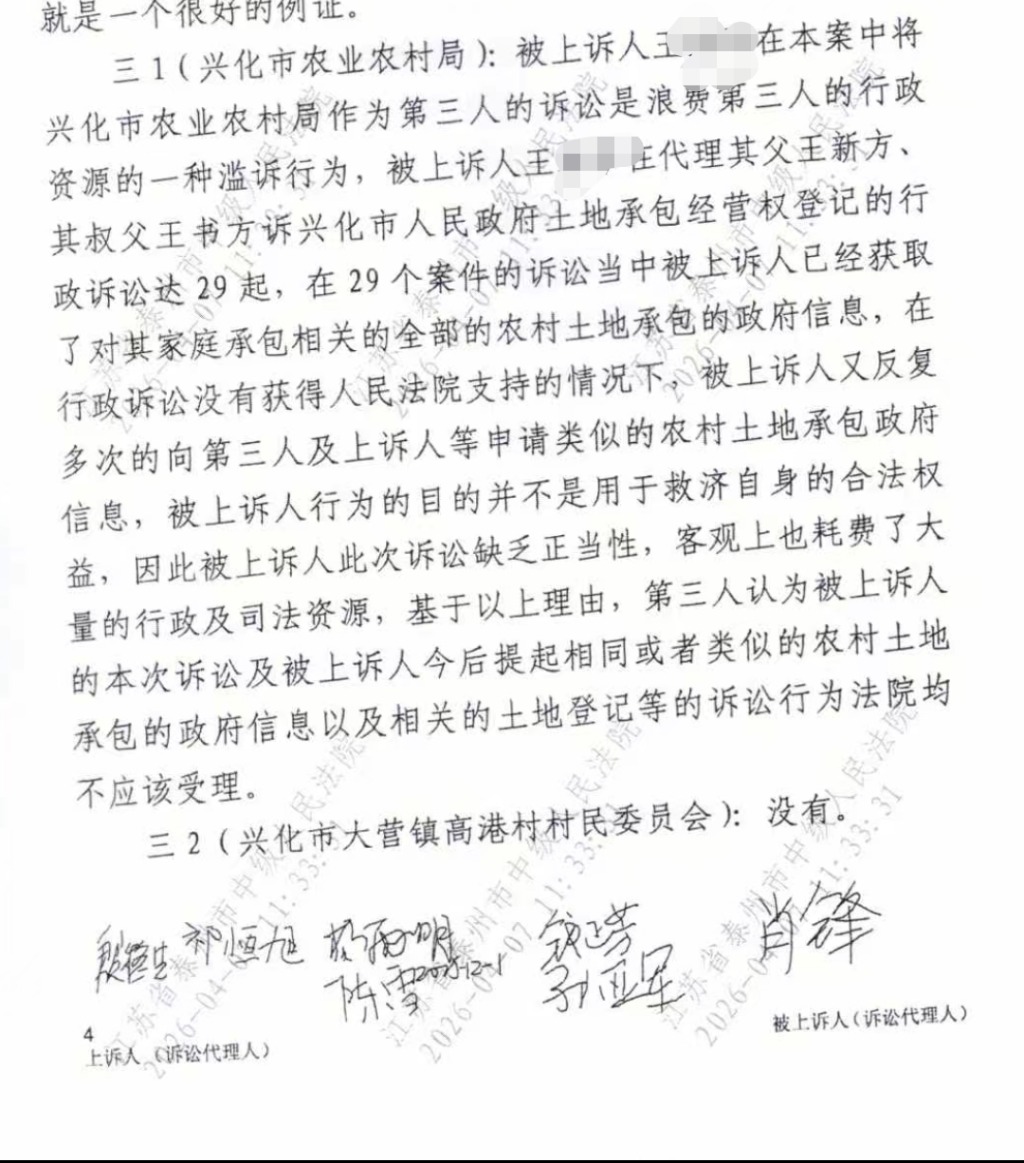 就是一个很好的例证。
三1（兴化市农业农村局）：被上诉人王 在本案中将
兴化市农业农村局作为第三人的诉讼是浪费第三人的行政
资源的一种滥诉行为，被上诉人王 在代理其父王新方、
其叔父王书方诉兴化市人民政府土地承包经营权登记的行
政诉讼达 29 起，在 29 个案件的诉讼当中被上诉人已经获取
了对其家庭承包相关的全部的农村土地承包的政府信息，在
行政诉讼没有获得人民法院支持的情况下，被上诉人又反复
多次的向第三人及上诉人等申请类似的农村土地承包政府
信息，被上诉人行为的目的并不是用于救济自身的合法权
益，因此被上诉人此次诉讼缺乏正当性，客观上也耗费了大
量的行政及司法资源，基于以上理由，第三人认为被上诉人
的本次诉讼及被上诉人今后提起相同或者类似的农村土地
承包的政府信息以及相关的土地登记等的诉讼行为法院均
不应该受理。
三2（兴化市大营镇高港村村民委员会）：没有。
祁恒旭 肖锋
陈雪 2025-12-1 孙亚军
4
上诉人（诉讼代理人） 被上诉人（诉讼代理人）
江苏省泰州市中级人民法院
2026-04-07 11:33:31